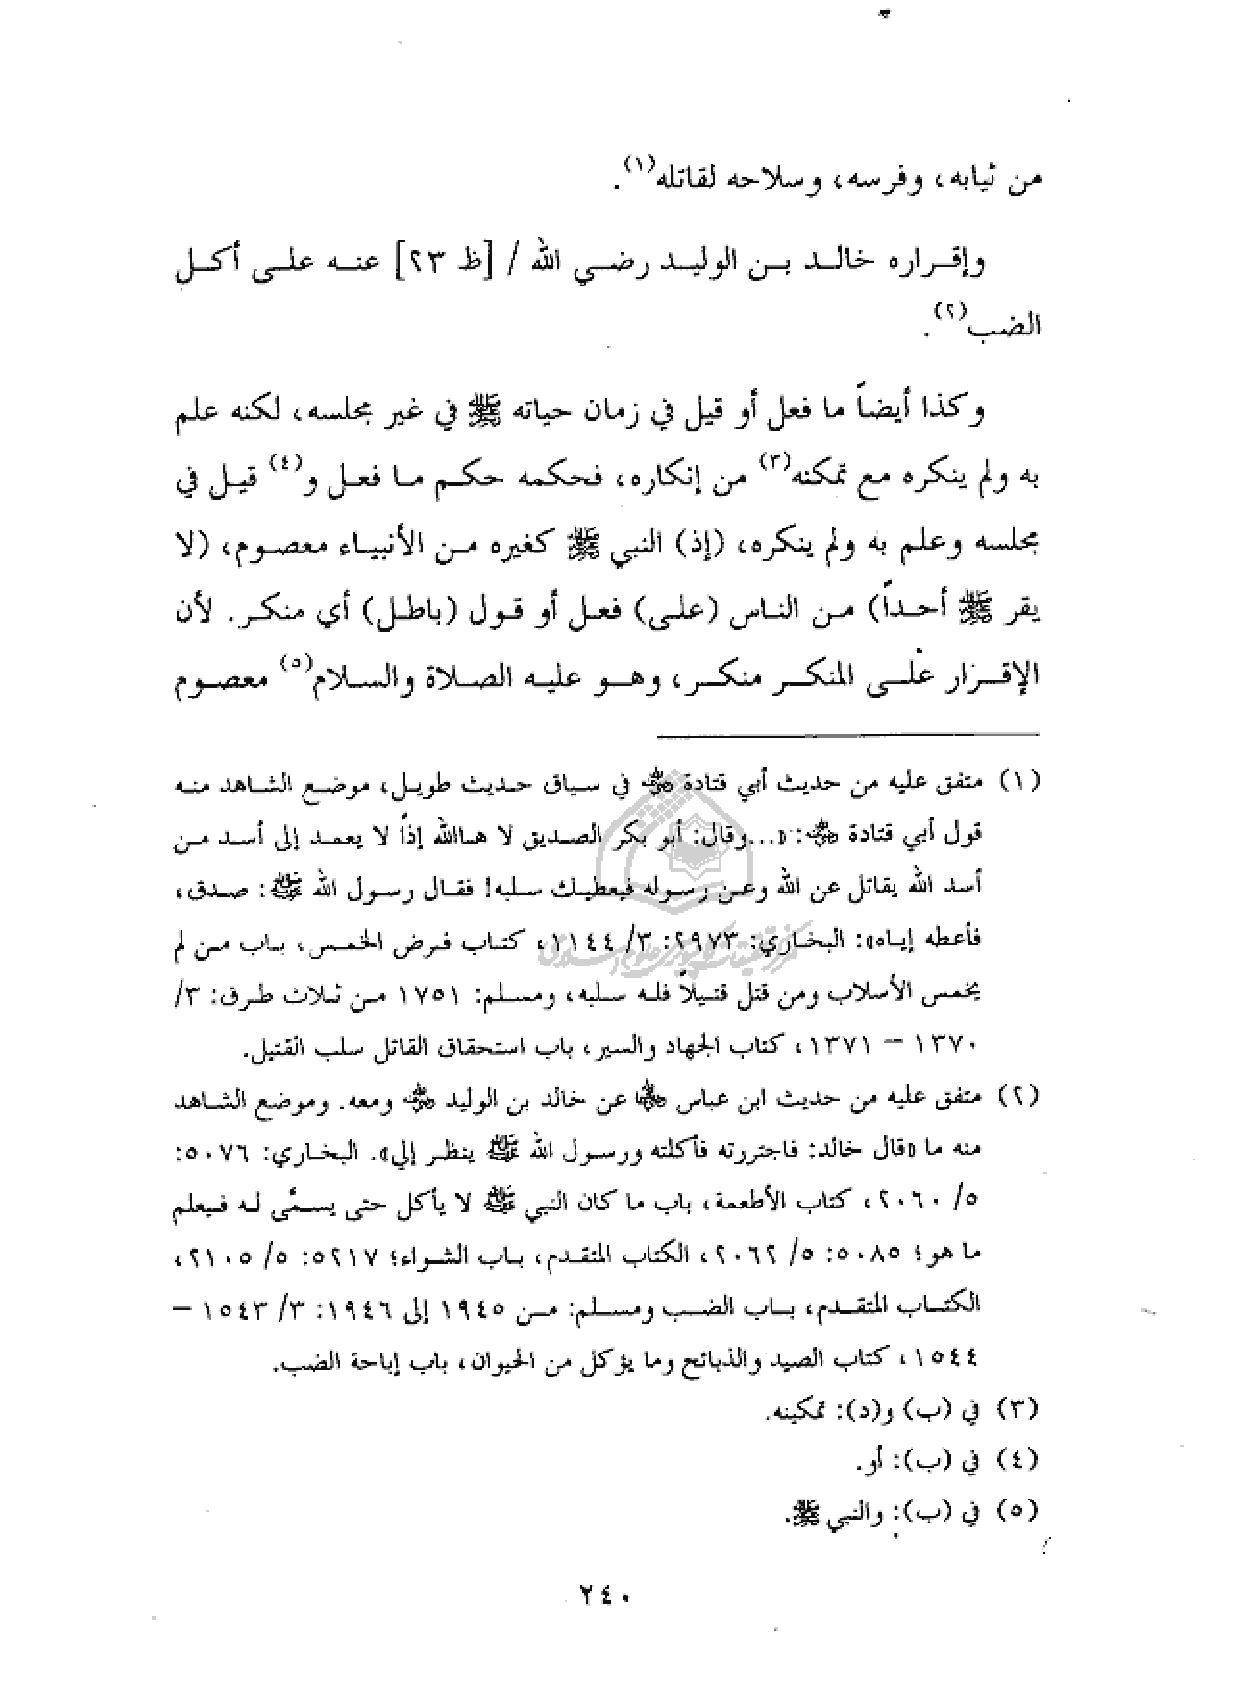 من ثيابه، وفرسه، وسلاحه لقاتله(١).
وإقراره خالد بن الوليد رضي الله / [ظ ٢٣] عنه على أكل
الضب(٢).
وكذا أيضاً ما فعل أو قيل في زمان حياته ﷺ في غير مجلسه، لكنه علم
به ولم ينكره مع تمكنه(٣) من إنكاره، فحكمه حكم ما فعل و(٤) قيل في
مجلسه وعلم به ولم ينكره، (إذ) النبي ﷺ كغيره من الأنبياء معصوم، (لا
يقر ﷺ أحداً) من الناس (على) فعل أو قول (باطل) أي منكر. لأن
الإقرار على المنكر منكر، وهو عليه الصلاة والسلام(٥) معصوم
(١) متفق عليه من حديث أبي قتادة ﷺ في سياق حديث طويل، موضع الشاهد منه
قول أبي قتادة ﷺ: «...وقال: أبو بكر الصديق لا هاالله إذاً لا يعمد إلى أسد من
أسد الله يقاتل عن الله وعن رسوله فيعطيك سلبه! فقال رسول الله ﷺ: صدق،
فأعطه إياه»: البخاري: ٢٩٧٣: ٣/ ١١٤٤، كتاب فرض الخمس، باب من لم
يخمس الأسلاب ومن قتل قتيلاً فله سلبه، ومسلم: ١٧٥١ من ثلاث طرق: ٣/
١٣٧٠ – ١٣٧١، كتاب الجهاد والسير، باب استحقاق القاتل سلب القتيل.
(٢) متفق عليه من حديث ابن عباس عن خالد بن الوليد ومعه. وموضع الشاهد
منه ما «قال خالد: فاجتررته فأكلته ورسول الله ﷺ ينظر إلي». البخاري: ٥٠٧٦:
٥/ ٢٠٦٠، كتاب الأطعمة، باب ما كان النبي ﷺ لا يأكل حتى يسمّى له فيعلم
ما هو؛ ٥٠٨٥: ٥/ ٢٠٦٢، الكتاب المتقدم، باب الشواء؛ ٥٢١٧: ٥/ ٢١٠٥،
الكتاب المتقدم، باب الضب ومسلم: من ١٩٤٥ إلى ١٩٤٦: ٣/ ١٥٤٣ –
١٥٤٤، كتاب الصيد والذبائح وما يؤكل من الحيوان، باب إباحة الضب.
(٣) في (ب) و(د): تمكينه.
(٤) في (ب): أو.
(٥) في (ب): والنبي ﷺ.
٢٤٠